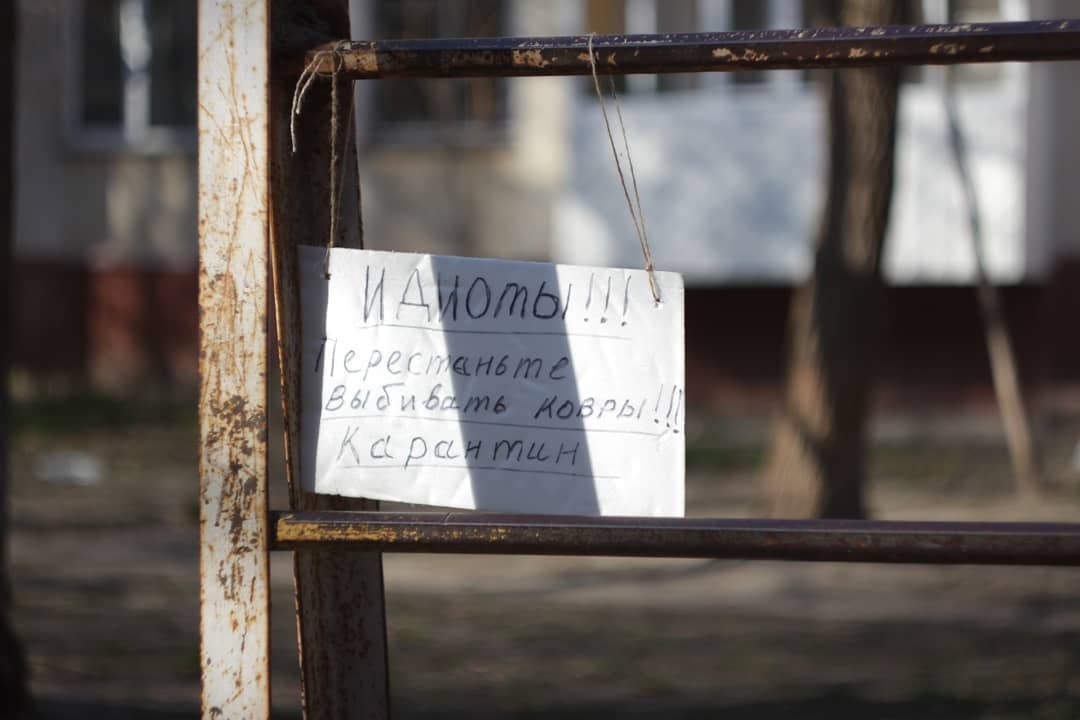 ИДИОТЫ!!!
Перестаньте
выбивать ковры!!!
Карантин